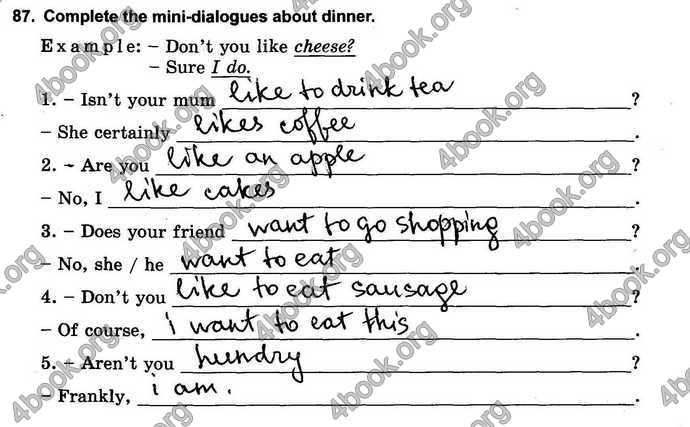 87. Complete the mini-dialogues about dinner.
Example: – Don't you like cheese?
– Sure I do.
1. – Isn't your mum like to drink tea?
– She certainly likes coffee.
2. – Are you like an apple?
– No, I like cakes.
3. – Does your friend want to go shopping?
– No, she / he want to eat.
4. – Don't you like to eat sausage?
– Of course, i want to eat this.
5. – Aren't you hundry?
– Frankly, i am.
4book.org